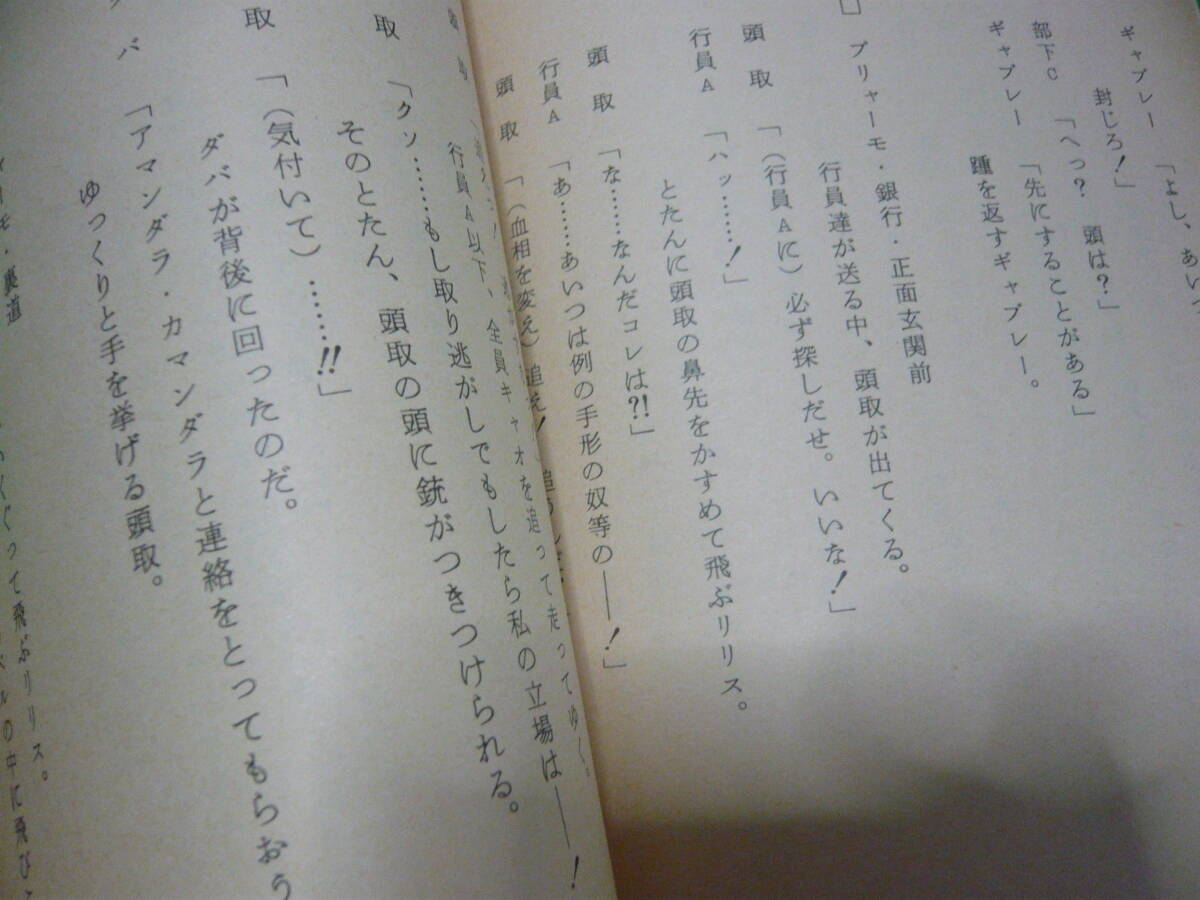 ギャブレー　「よし、あいつ
封じろ！」
部下C　「へっ？　頭は？」
ギャブレー　「先にすることがある」
踵を返すギャブレー。
□　プリャーモ・銀行・正面玄関前
行員達が送る中、頭取が出てくる。
頭　取　「（行員Aに）必ず探しだせ。いいな！」
行員A　「ハッ……！」
とたんに頭取の鼻先をかすめて飛ぶリリス。
頭　取　「な……なんだコレは?!」
行員A　「あ……あいつは例の手形の奴等の――！」
頭　取　「（血相を変え）追え！
行員A以下、全員キャオを追って走ってゆく。
取　「クソ……もし取り逃がしでもしたら私の立場は――！
そのとたん、頭取の頭に銃がつきつけられる。
取　「（気付いて）……!!」
ダバが背後に回ったのだ。
バ　「アマンダラ・カマンダラと連絡をとってもらおう
ゆっくりと手を挙げる頭取。
モ・裏道
くぐって飛ぶリリス。
の中に飛び